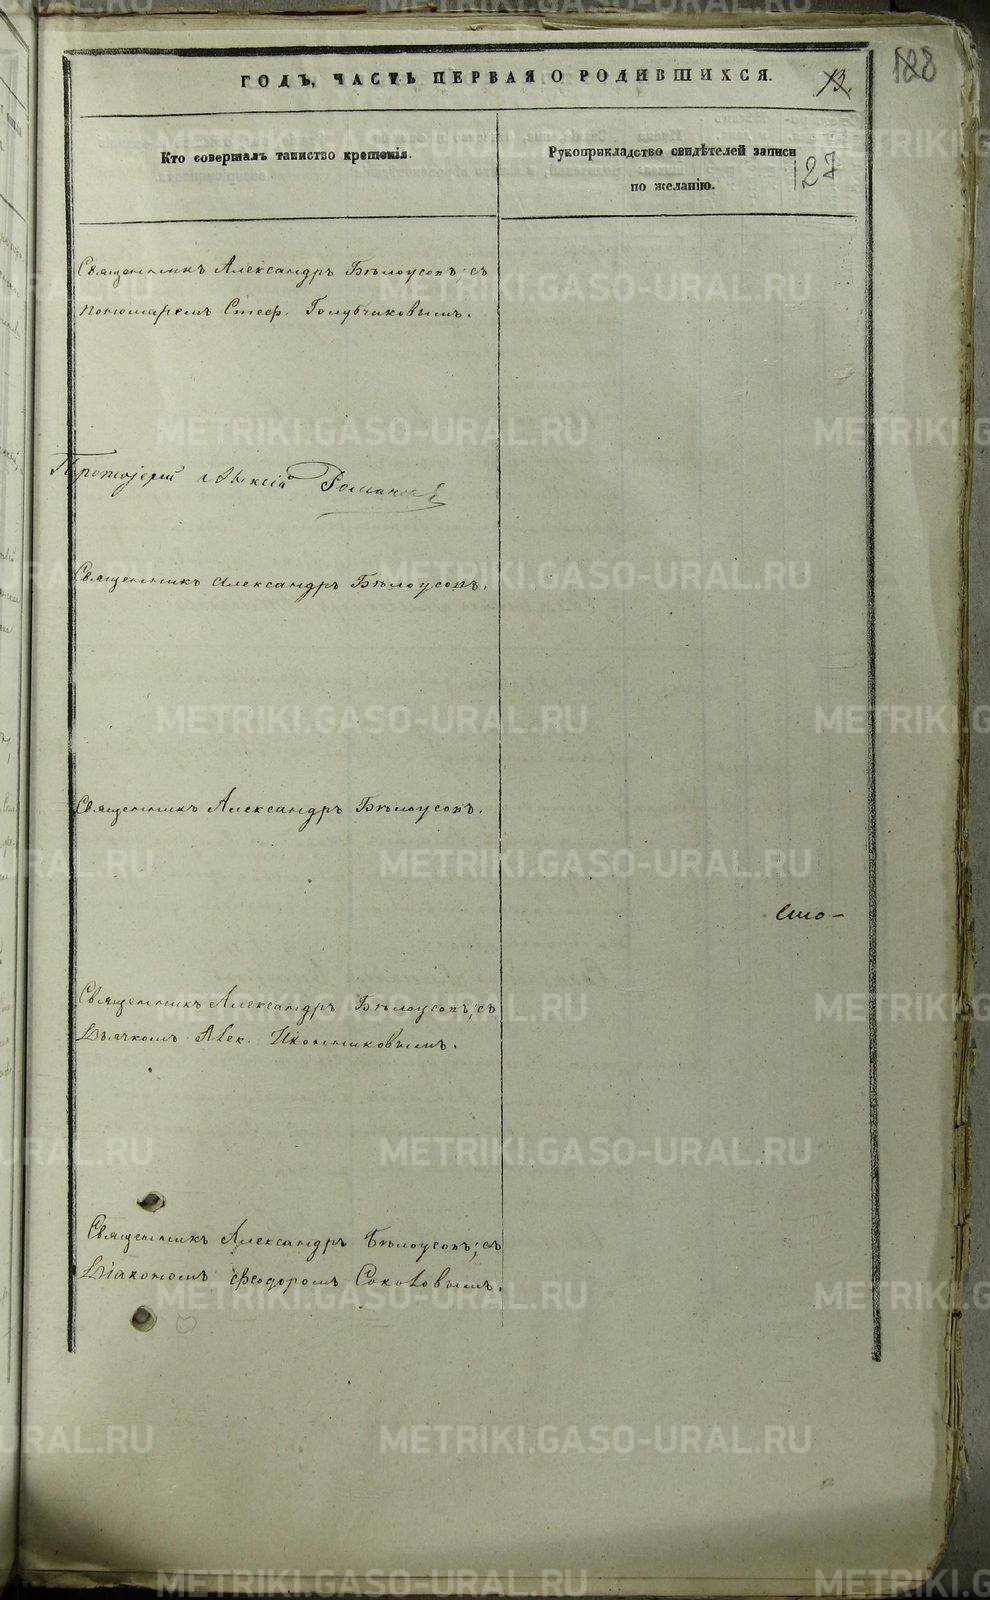 ГОДЪ, ЧАСТЬ ПЕРВАЯ О РОДИВШИХСЯ.
13.
128
Кто совершалъ таинство крещенія.
Рукоприкладство свидѣтелей записи
по желанію.
127
Священникъ Александръ Бѣлоусовъ; съ
пономаремъ Стеф. Голубчиковымъ.
Протоіерей Алексій Романов
Священникъ Александръ Бѣлоусовъ.
Священникъ Александръ Бѣлоусовъ.
Священникъ Александръ Бѣлоусовъ; съ
Дьячкомъ Алек. Иконниковымъ.
Священникъ Александръ Бѣлоусовъ; съ
Діакономъ Феодоромъ Соколовымъ.
METRIKI.GASO-URAL.RU